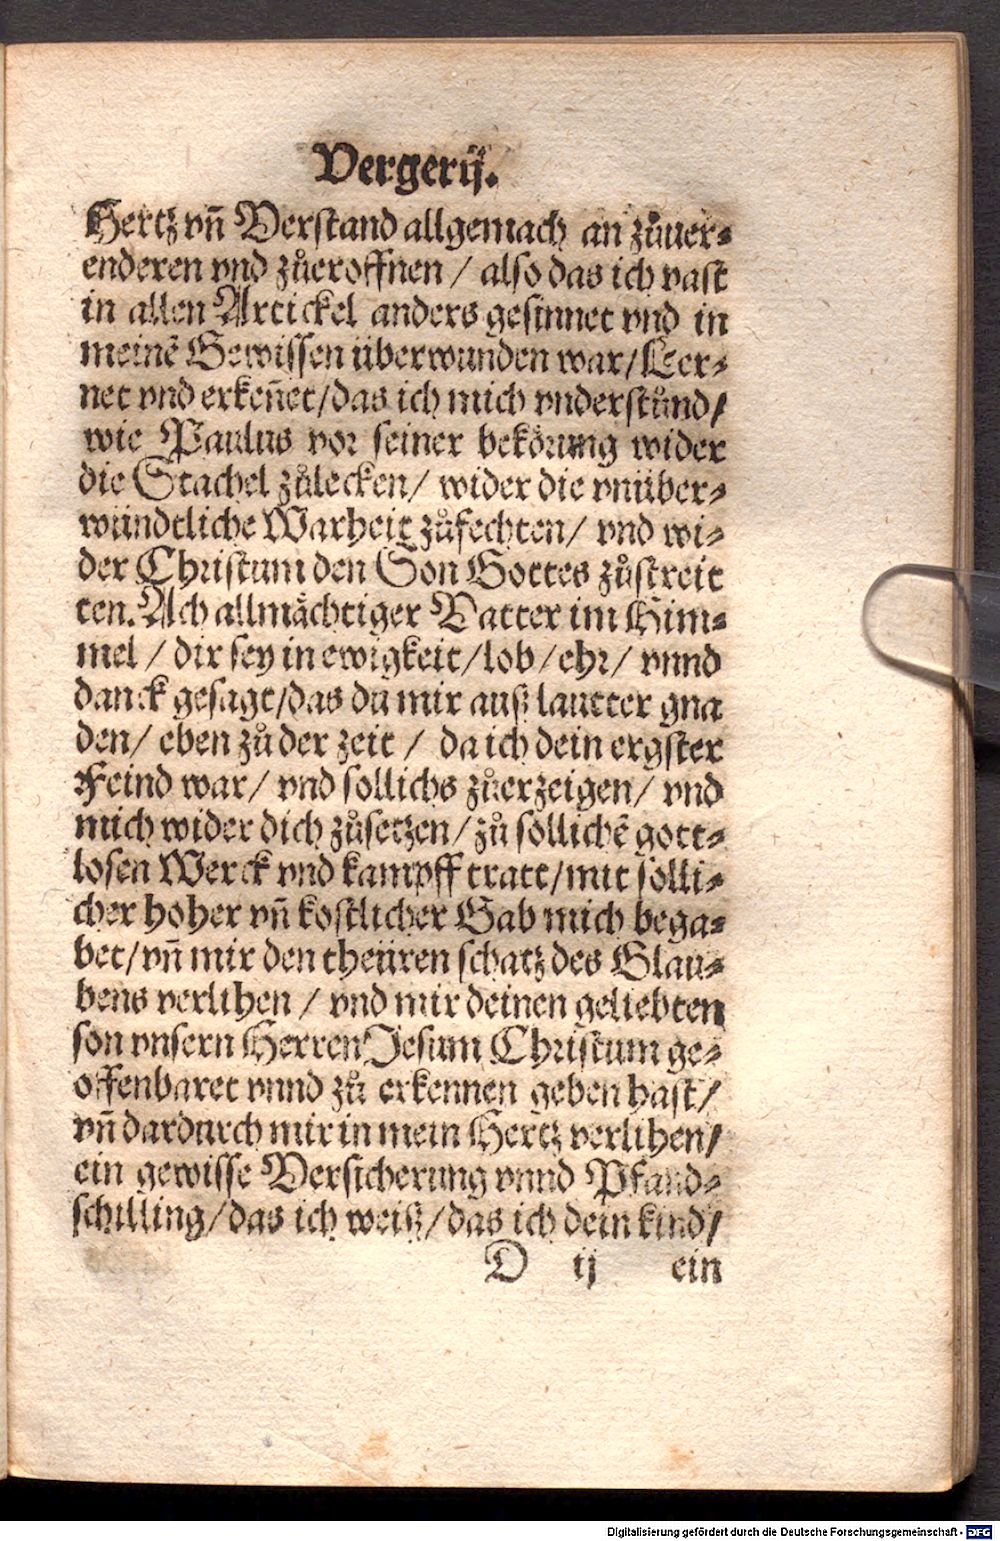 Vergerij.
Hertz vñ Verstand allgemach an zůuer⸗
enderen vnd zůeroffnen / also das ich vast
in allen Artickel anders gesinnet vnd in
meinē Gewissen überwunden war/ Ler⸗
net vnd erkeñet/das ich mich vnderstůnd/
wie Paulus vor seiner bekörung wider
die Stachel zůlecken/ wider die vnüber⸗
wündtliche Warheit zůfechten/ vnd wi⸗
der Christum den Son Gottes zůstreit
ten. Ach allmächtiger Vatter im Him⸗
mel / dir sey in ewigkeit/lob/ehr/ vnnd
danck gesagt/das du mir auß lautter gna
den/ eben zů der zeit / da ich dein ergster
Feind war/ vnd sollichs zůerzeigen/ vnd
mich wider dich zůsetzen/zů sollichē gott⸗
losen Werck vnd kampff tratt/mit solli⸗
cher hoher vñ kostlicher Gab mich bega⸗
bet/vñ mir den theüren schatz des Glau⸗
bens verlihen / vnd mir deinen geliebten
son vnsern Herren Jesum Christum ge⸗
offenbaret vnnd zů erkennen geben hast/
vñ dardurch mir in mein Hertz verlihen/
ein gewisse Versicherung vnnd Pfand⸗
schilling/das ich weiß/das ich dein kind/
D ij ein
Digitalisierung gefördert durch die Deutsche Forschungsgemeinschaft - DFG